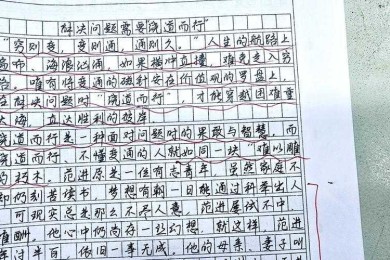 解决问题需要"绕道而行"
"穷则变，变则通，通则久。"人生的航路上
密布，海浪汹涌，如果横冲直撞，难免走入穷
路。唯有将变通的磁针安在价值观的罗盘上，
在解决问题时"绕道而行"，才能穿越困难重
大海，直达胜利的彼岸
绕道而行是一种面对问题时的果敢与智慧。而
绕道而行，不懂变通的人就如同一块"难以雕
的朽木。范进原是一位有志青年，虽然家庭不
却仍刻苦读书，梦想有朝一日能通过科举出人
可现实总是那么不尽人意，范进屡试不中
难酬。他心中仍尚存一丝幻想，就这样，范进
过半百，依旧一事无成，他的母亲、妻子叫